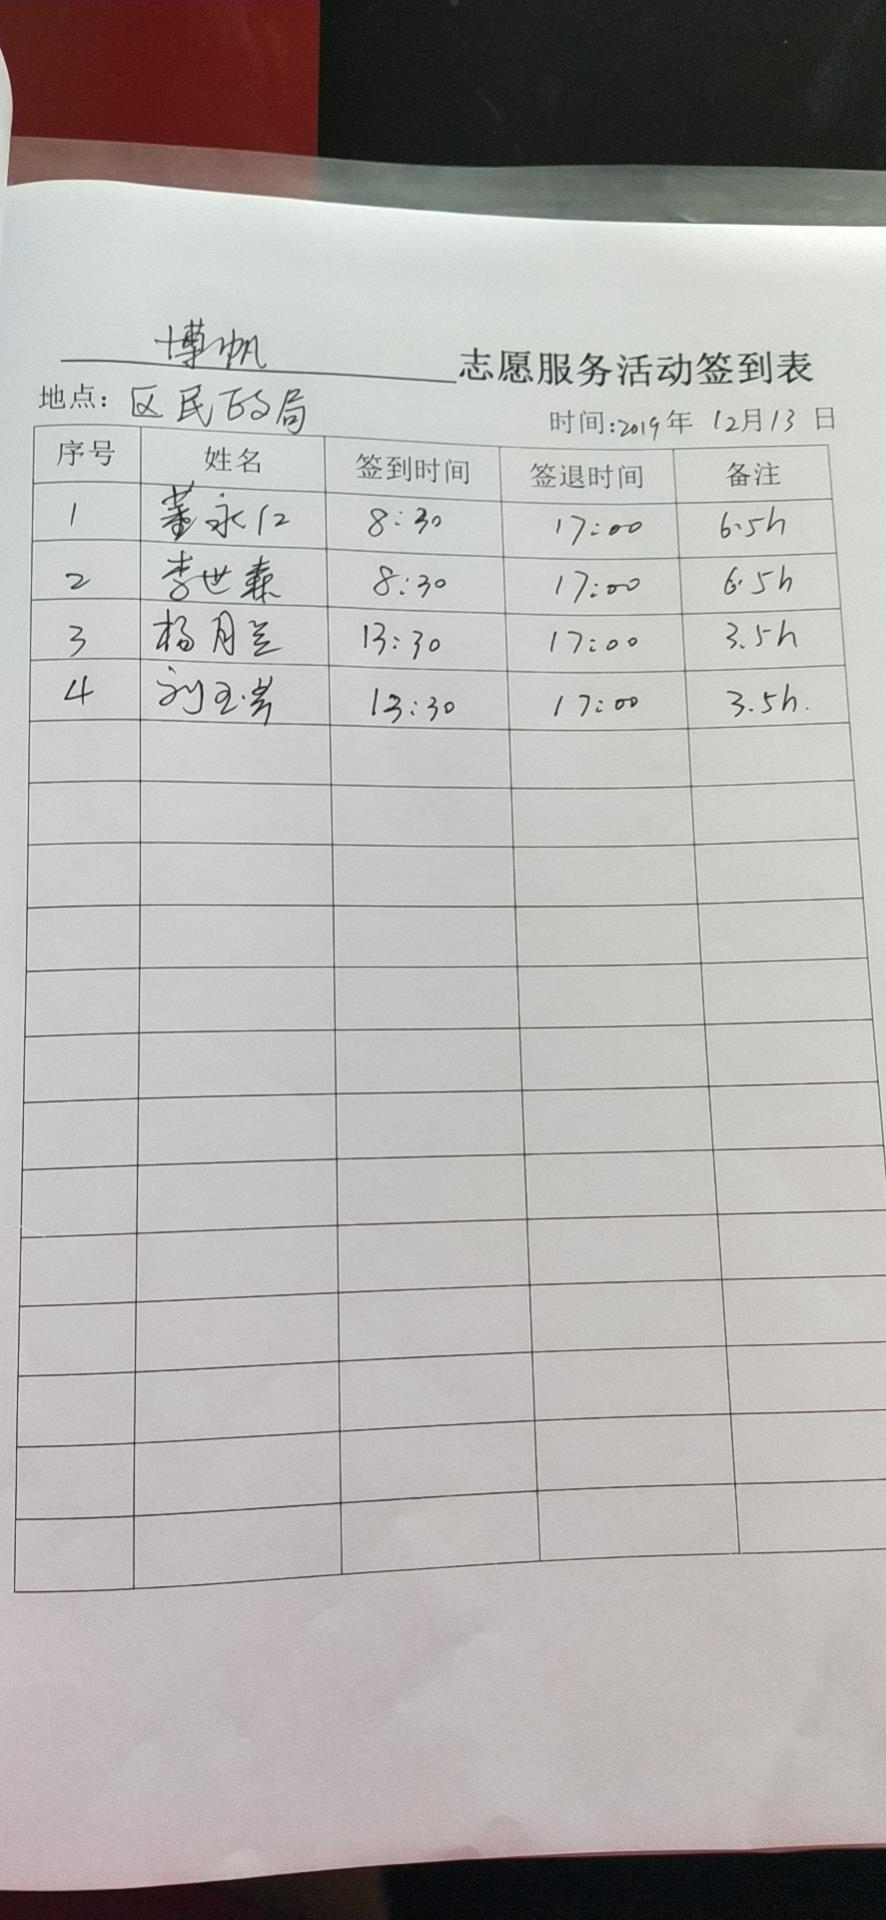 博帆 志愿服务活动签到表
地点: 区民政局 时间:2019年 12月13日
序号 姓名 签到时间 签退时间 备注
1 董永仁 8:30 17:00 6.5h
2 李世森 8:30 17:00 6.5h
3 杨月兰 13:30 17:00 3.5h
4 刘玉 13:30 17:00 3.5h.